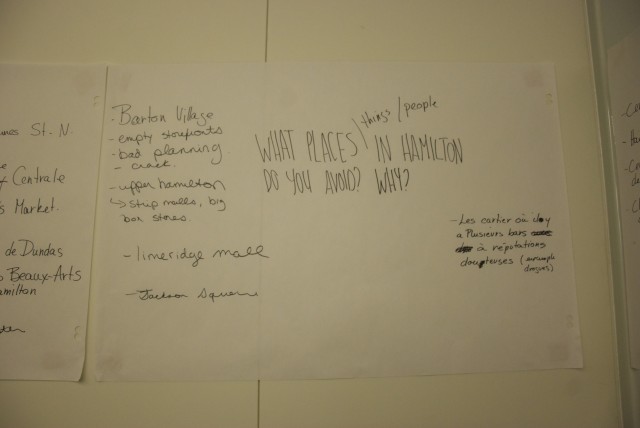 St. N.
Centrale
Market.
de Dundas
Beaux-Arts
amilton
- Barton Village
- empty storefronts
- bad planning
- crack.
- upper hamilton
↳ strip malls, big
box stores.
- limeridge mall
- Jackson Square
things / people
WHAT PLACES IN HAMILTON
DO YOU AVOID? WHY?
- Les cartier où
a Plusieurs bars
à réputations
(
drogues)